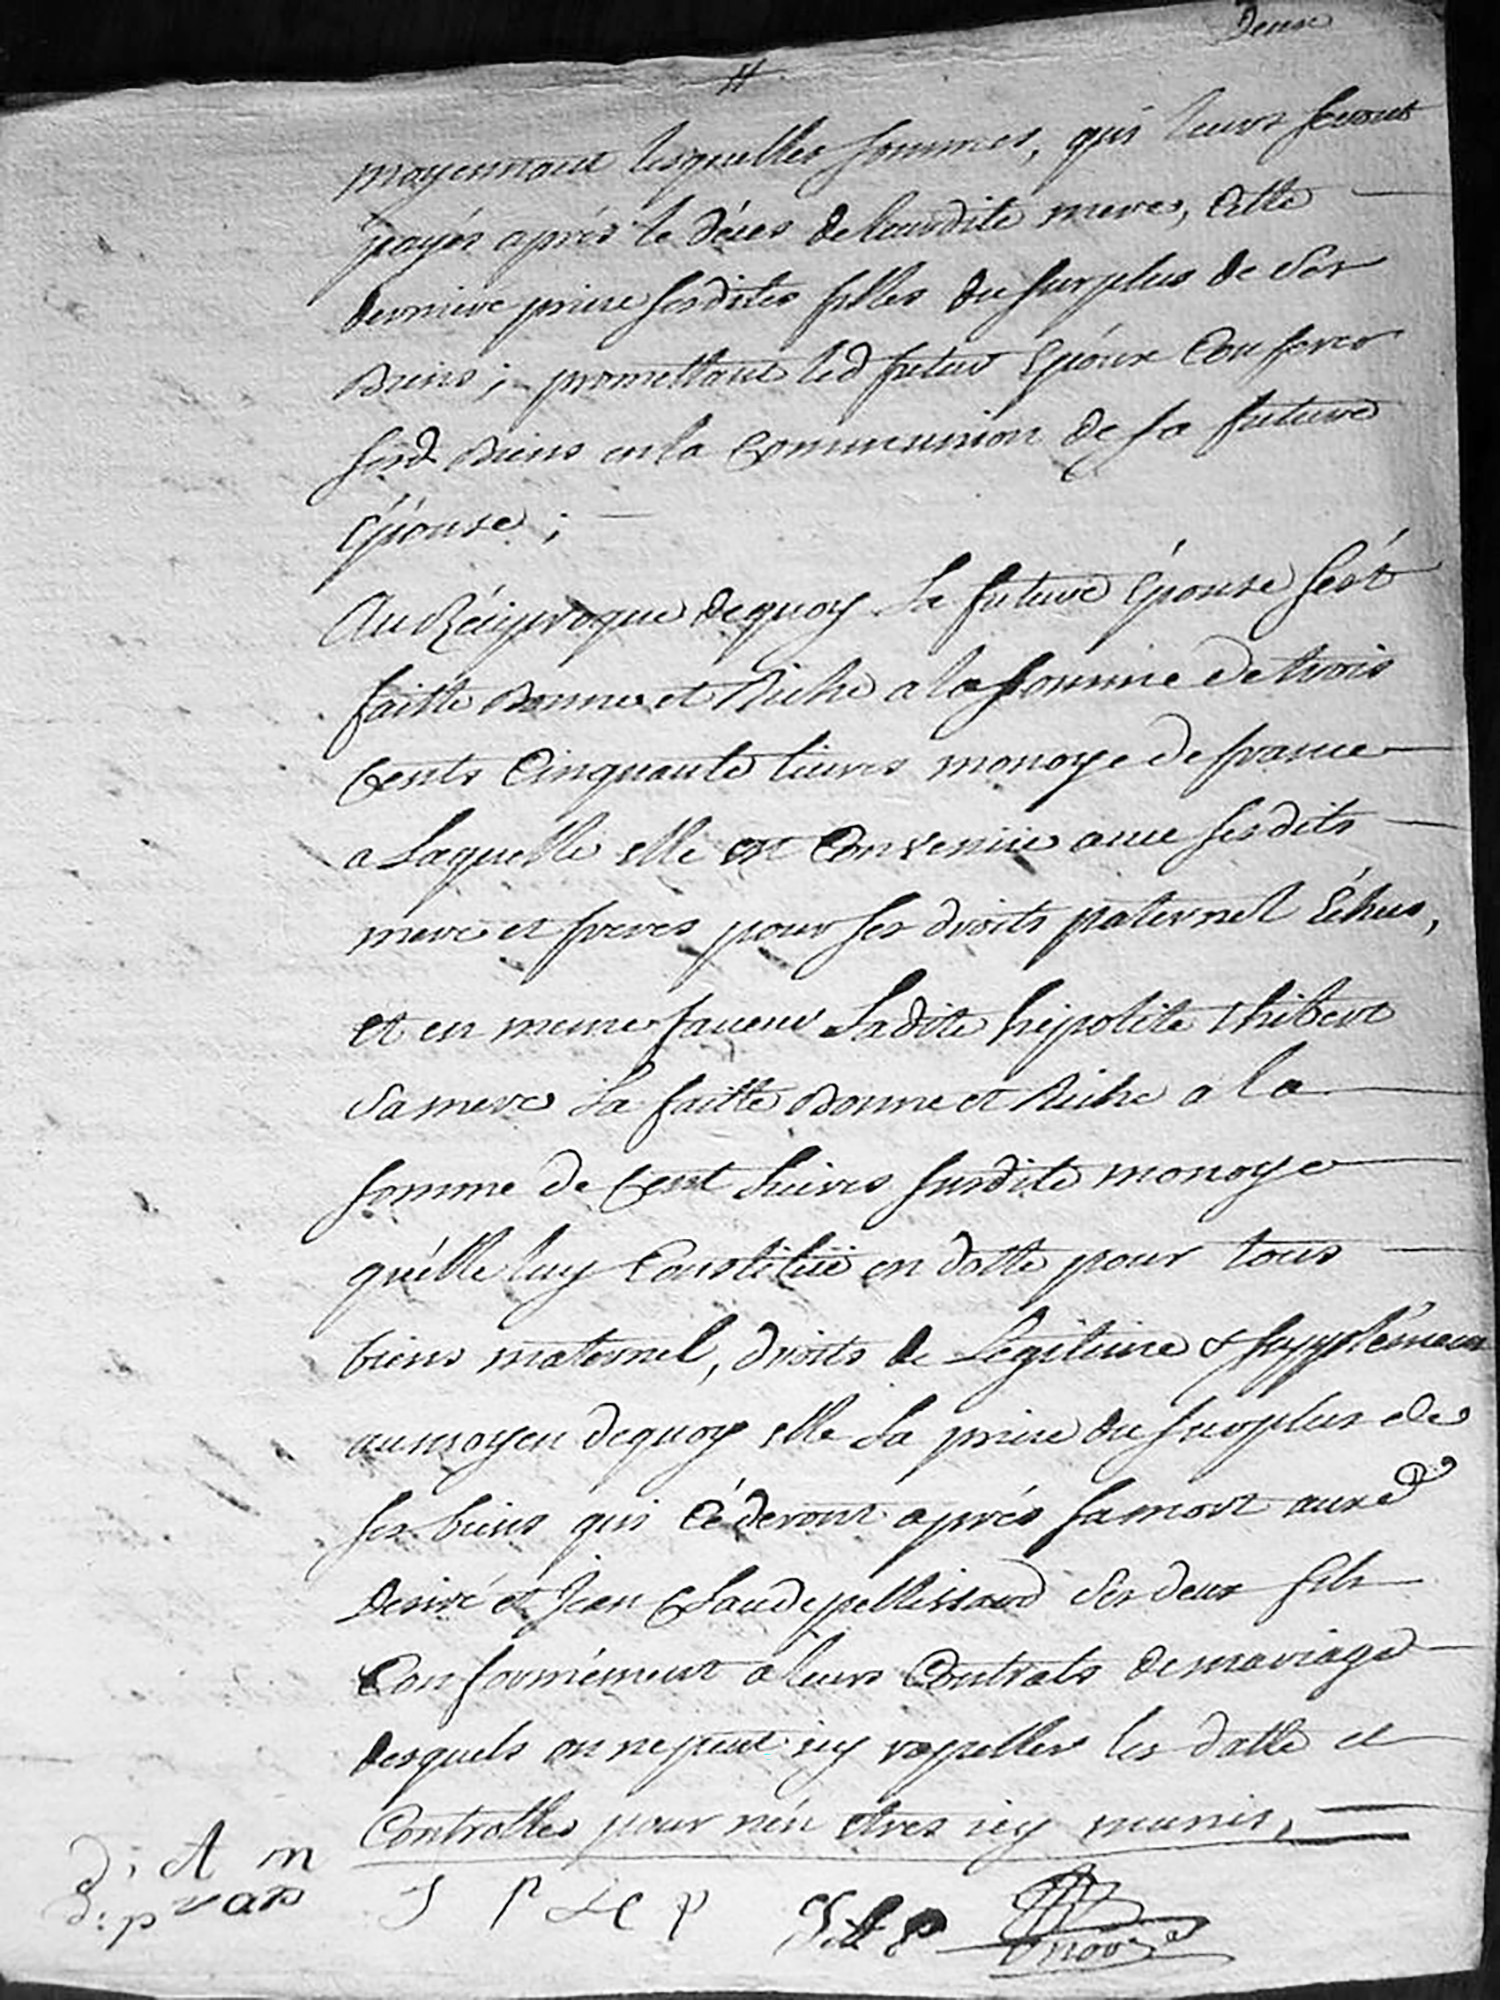 Deux
moyennant lesquelles sommes, qui leurs seront
payés aprés le déces de laurdite mere, cette
derniere prive sesdites filles du surplus de ses
Biens; promettant led futur Epoux Conferer
sesd Biens en la Communion de sa future
Epouse;
Au Réciproque dequoy La future Epouse s'est
faitte Bonne et Riche a la somme de trois
Cents Cinquante livres monoye de france
a Laquelle elle est Convenüe avec sesdits
mere et freres pour ses droits paternel Echus,
et en meme faveur Ladite hipolite thibert
Sa mere La faitte Bonne et Riche a la
somme de Cent Livres susdite monoye
qu'elle luy Constitüe en dotte pour tous
biens maternel, droits de Legitime & supplément
au moyen dequoy elle La prive du surplus de
ses biens qui Céderont aprés sa mort auxd
Desiré et Jean Claude pellissard Ses deux fils
Conformément a leurs Contrats de mariage
desquels on ne peut icy rapeller les datte et
Controlles pour n'en etres icy munis,
d. A m
J P J C P